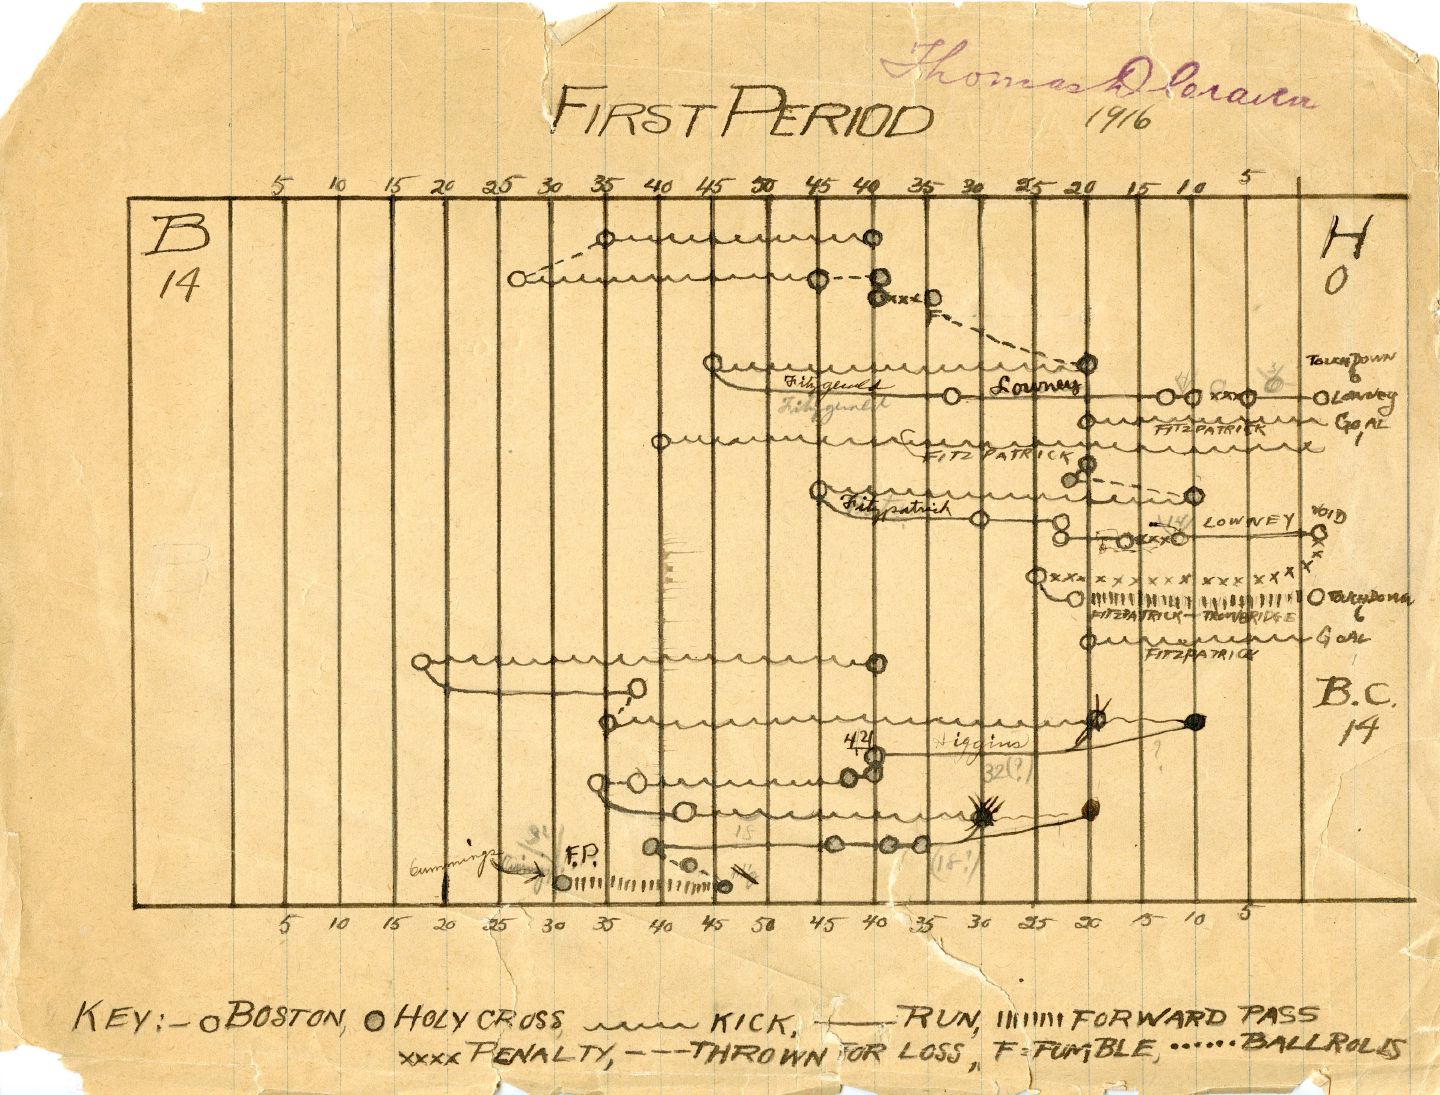 Thomas D Craven
FIRST PERIOD
1916
5 10 15 20 25 30 35 40 45 50 45 40 35 30 25 20 15 10 5
B
14
H
0
F
TOUCHDOWN
6
Fitzgerald
Lowney
LOWNEY
Fitzgerald
FITZPATRICK
GOAL
1
FITZPATRICK
Fitzpatrick
14
LOWNEY
VOID
TOUCHDOWN
6
FITZPATRICK - TROWBRIDGE
GOAL
FITZPATRICK
B.C.
14
44
Higgins
?
32(?)
18
(18?)
Cummings
F.P.
5 10 15 20 25 30 35 40 45 50 45 40 35 30 25 20 15 10 5
KEY:- BOSTON, HOLY CROSS, KICK, RUN, FORWARD PASS
xxxx PENALTY, --- THROWN FOR LOSS, F=FUMBLE, ...... BALL ROLLS